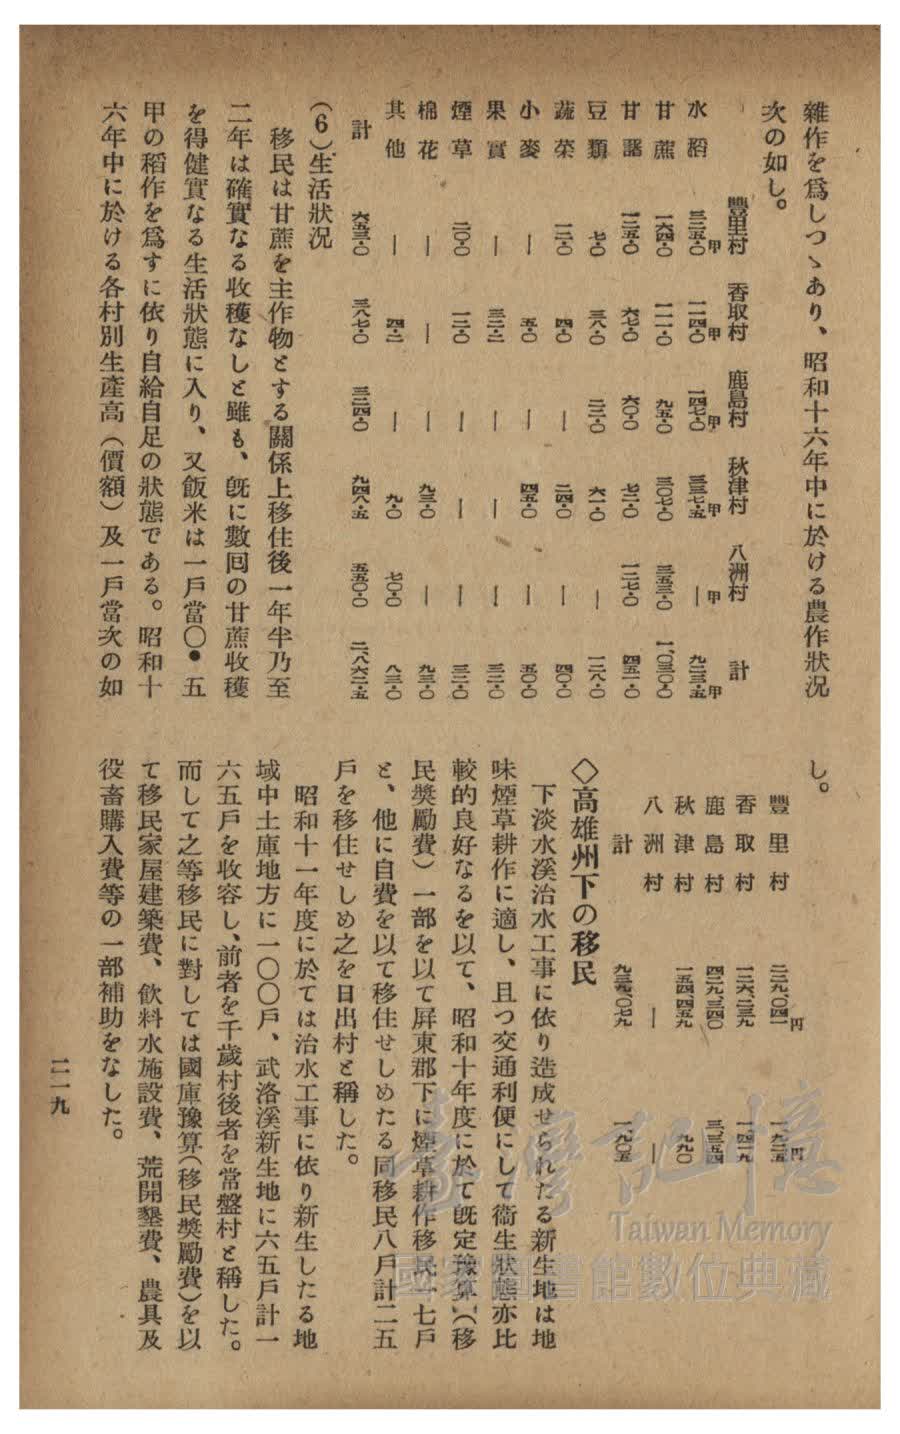 雜作を爲しつゝあり、昭和十六年中に於ける農作狀況
次の如し。
豐里村 香取村 鹿島村 秋津村 八洲村 計
水稻 三二五・〇甲 一一四・〇甲 一四七・〇甲 三三七・五甲 ―甲 九二三・五甲
甘蔗 一六四・〇 一一一・〇 九五・〇 三〇七・〇 三五三・〇 一、〇三〇・〇
甘藷 一二五・〇 六七・〇 六〇・〇 七二・〇 一二七・〇 四五一・〇
豆類 七・〇 三八・〇 二二・〇 六一・〇 ― 一二八・〇
蔬菜 一二・〇 四・〇 ― 二四・〇 ― 四〇・〇
小麥 ― 五・〇 ― 四五・〇 ― 五〇・〇
果實 ― 三二・二 ― ― ― 三二・〇
煙草 二〇・〇 一二・〇 ― ― ― 三二・〇
棉花 ― ― ― 九三・〇 ― 九三・〇
其他 ― 四・二 ― 九・〇 七〇・〇 八三・〇
計 六五三・〇 三八七・〇 三二四・〇 九四八・五 五五〇・〇 二、八六二・五
(6)生活狀況
移民は甘蔗を主作物とする關係上移住後一年半乃至
二年は確實なる收穫なしと雖も、旣に數囘の甘蔗收穫
を得健實なる生活狀態に入り、又飯米は一戶當〇・五
甲の稻作を爲すに依り自給自足の狀態である。昭和十
六年中に於ける各村別生產高(價額)及一戶當次の如
し。
豐里村 二二九、〇四一円 一、九二五円
香取村 一二六、二三九 一、四一九
鹿島村 四二九、三四〇 三、三五四
秋津村 一五四四五九 九九〇
八洲村 ― ―
計 九三九、〇七九 一、九〇五
◇高雄州下の移民
下淡水溪治水工事に依り造成せられたる新生地は地
味煙草耕作に適し、且つ交通利便にして衞生狀態亦比
較的良好なるを以て、昭和十年度に於て旣定豫算(移
民奬勵費)一部を以て屏東郡下に煙草耕作移民一七戶
と、他に自費を以て移住せしめたる同移民八戶計二五
戶を移住せしめ之を日出村と稱した。
昭和十一年度に於ては治水工事に依り新生したる地
域中土庫地方に一〇〇戶、武洛溪新生地に六五戶計一
六五戶を收容し、前者を千歲村後者を常盤村と稱した。
而して之等移民に對しては國庫豫算(移民奬勵費)を以
て移民家屋建築費、飮料水施設費、荒開墾費、農具及
役畜購入費等の一部補助をなした。
二一九
臺灣記憶
Taiwan Memory
國家圖書館數位典藏